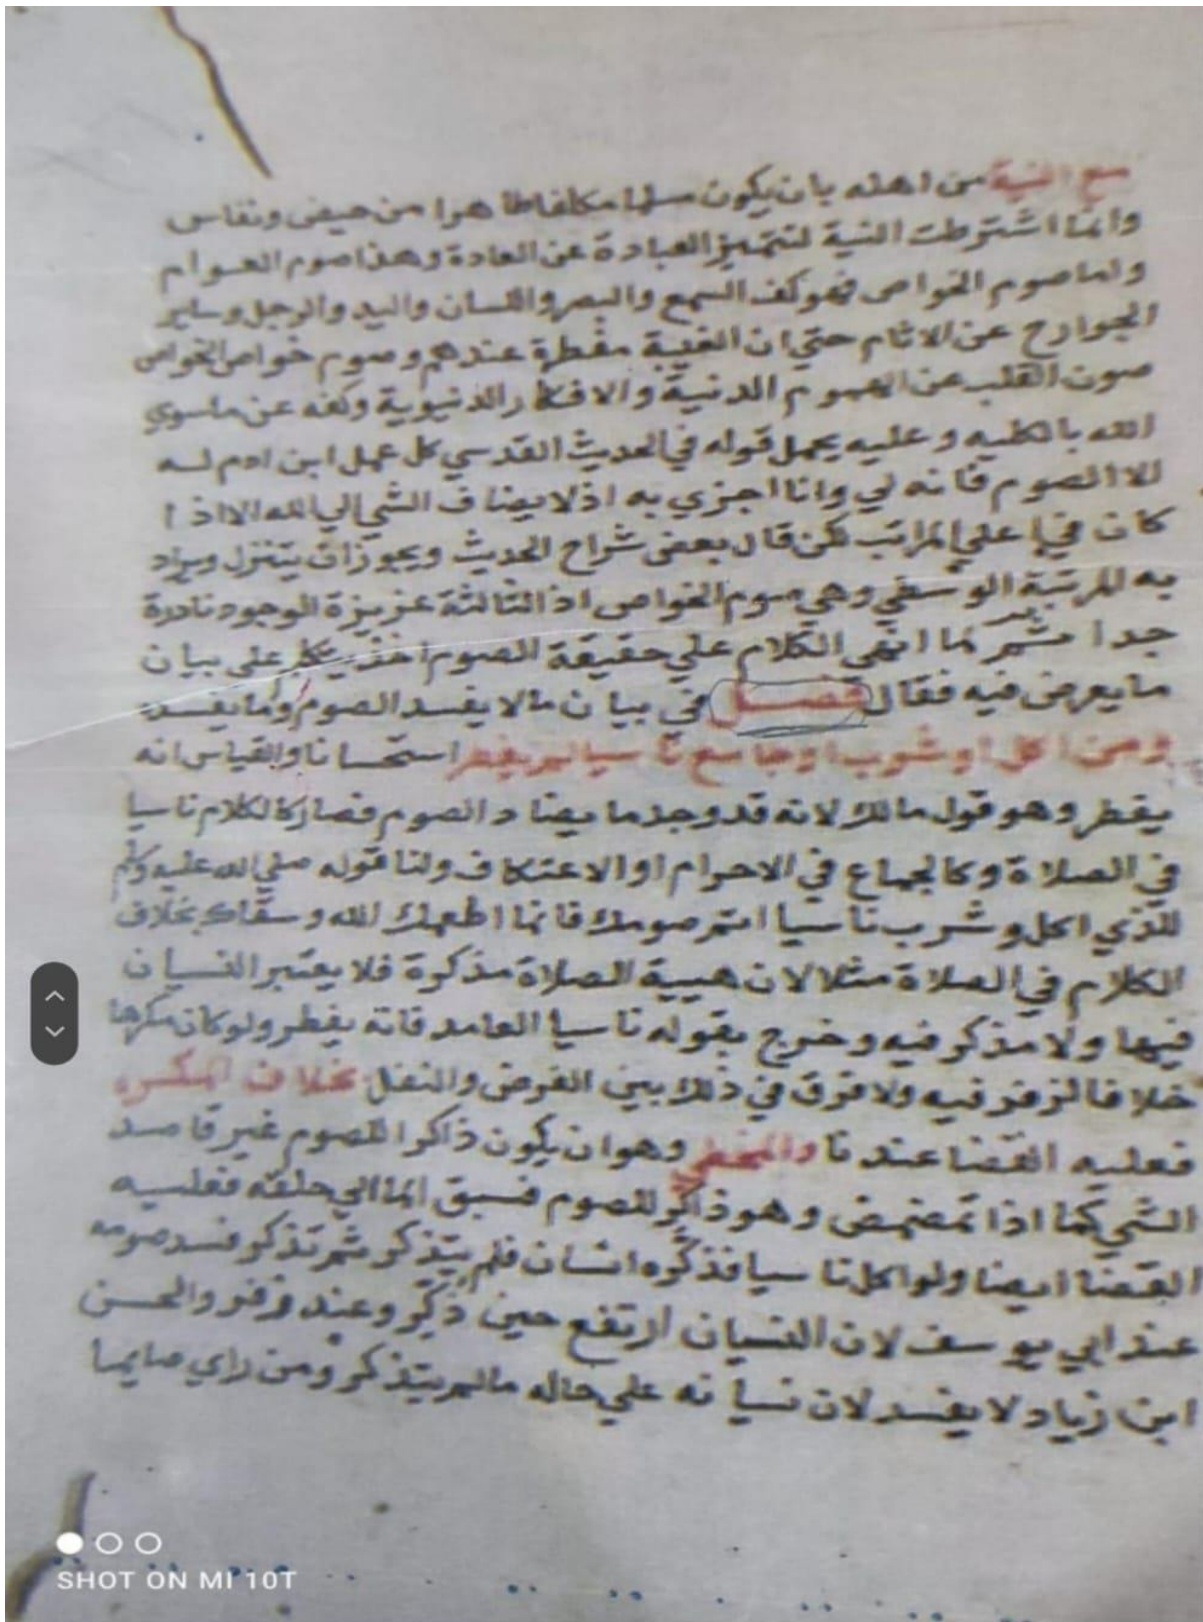 مع النية من اهله بان يكون مسلما مكلفا طاهرا من حيض ونفاس
وانما اشترطت النية لتتميز العبادة عن العادة وهذا صوم العوام
واما صوم الخواص فهو كف السمع والبصر واللسان واليد والرجل وساير
الجوارح عن الاثام حتي ان الغيبة مفطرة عندهم وصوم خواص الخواص
صون القلب عن الهموم الدنية والافكار الدنيوية وكفه عن ماسوي
الله بالكليه وعليه يحمل قوله في الحديث القدسي كل عمل ابن ادم له
الا الصوم فانه لي وانا اجزي به اذ لا يضاف الشي الي الله الا اذا
كان في اعلي المراتب لكن قال بعض شراح الحديث ويجوز ان يتنزل ويراد
به المرتبة الوسطي وهي صوم الخواص اذ الثالثة عزيزة الوجود نادرة
جدا ثم لما انهي الكلام علي حقيقة الصوم اخذ يتكلم علي بيان
ما يعرض فيه فقال فصل في بيان مالا يفسد الصوم وما يفسد
ومن اكل او شرب او جامع ناسيا لم يفطر استحسانا والقياس انه
يفطر وهو قول مالك لانه قد وجد ما يضاد الصوم فصار كالكلام ناسيا
في الصلاة وكالجماع في الاحرام او الاعتكاف ولنا قوله صلي الله عليه وسلم
للذي اكل وشرب ناسيا اتم صومك فانما اطعمك الله وسقاك بخلاف
الكلام في الصلاة مثلا لان هيية الصلاة مذكرة فلا يعتبر النسيان
فيها ولا مذكر فيه وخرج بقوله ناسيا العامد فانه يفطر ولو كان مكرها
خلافا لزفر فيه ولا فرق في ذلك بين الفرض والنفل بخلاف المكره
فعليه القضا عندنا والمخطي وهو ان يكون ذاكرا للصوم غير قاصد
الشي كما اذا تمضمض وهو ذاكر للصوم فسبق الما الي حلقه فعليه
القضا ايضا ولو اكل ناسيا فذكره انسان فلم يتذكر ثم تذكر فسد صومه
عند ابي يوسف لان النسيان ارتفع حين ذكر وعند زفر والحسن
ابن زياد لا يفسد لان نسيانه علي حاله مالم يتذكر ومن راي صايما
SHOT ON MI 10T